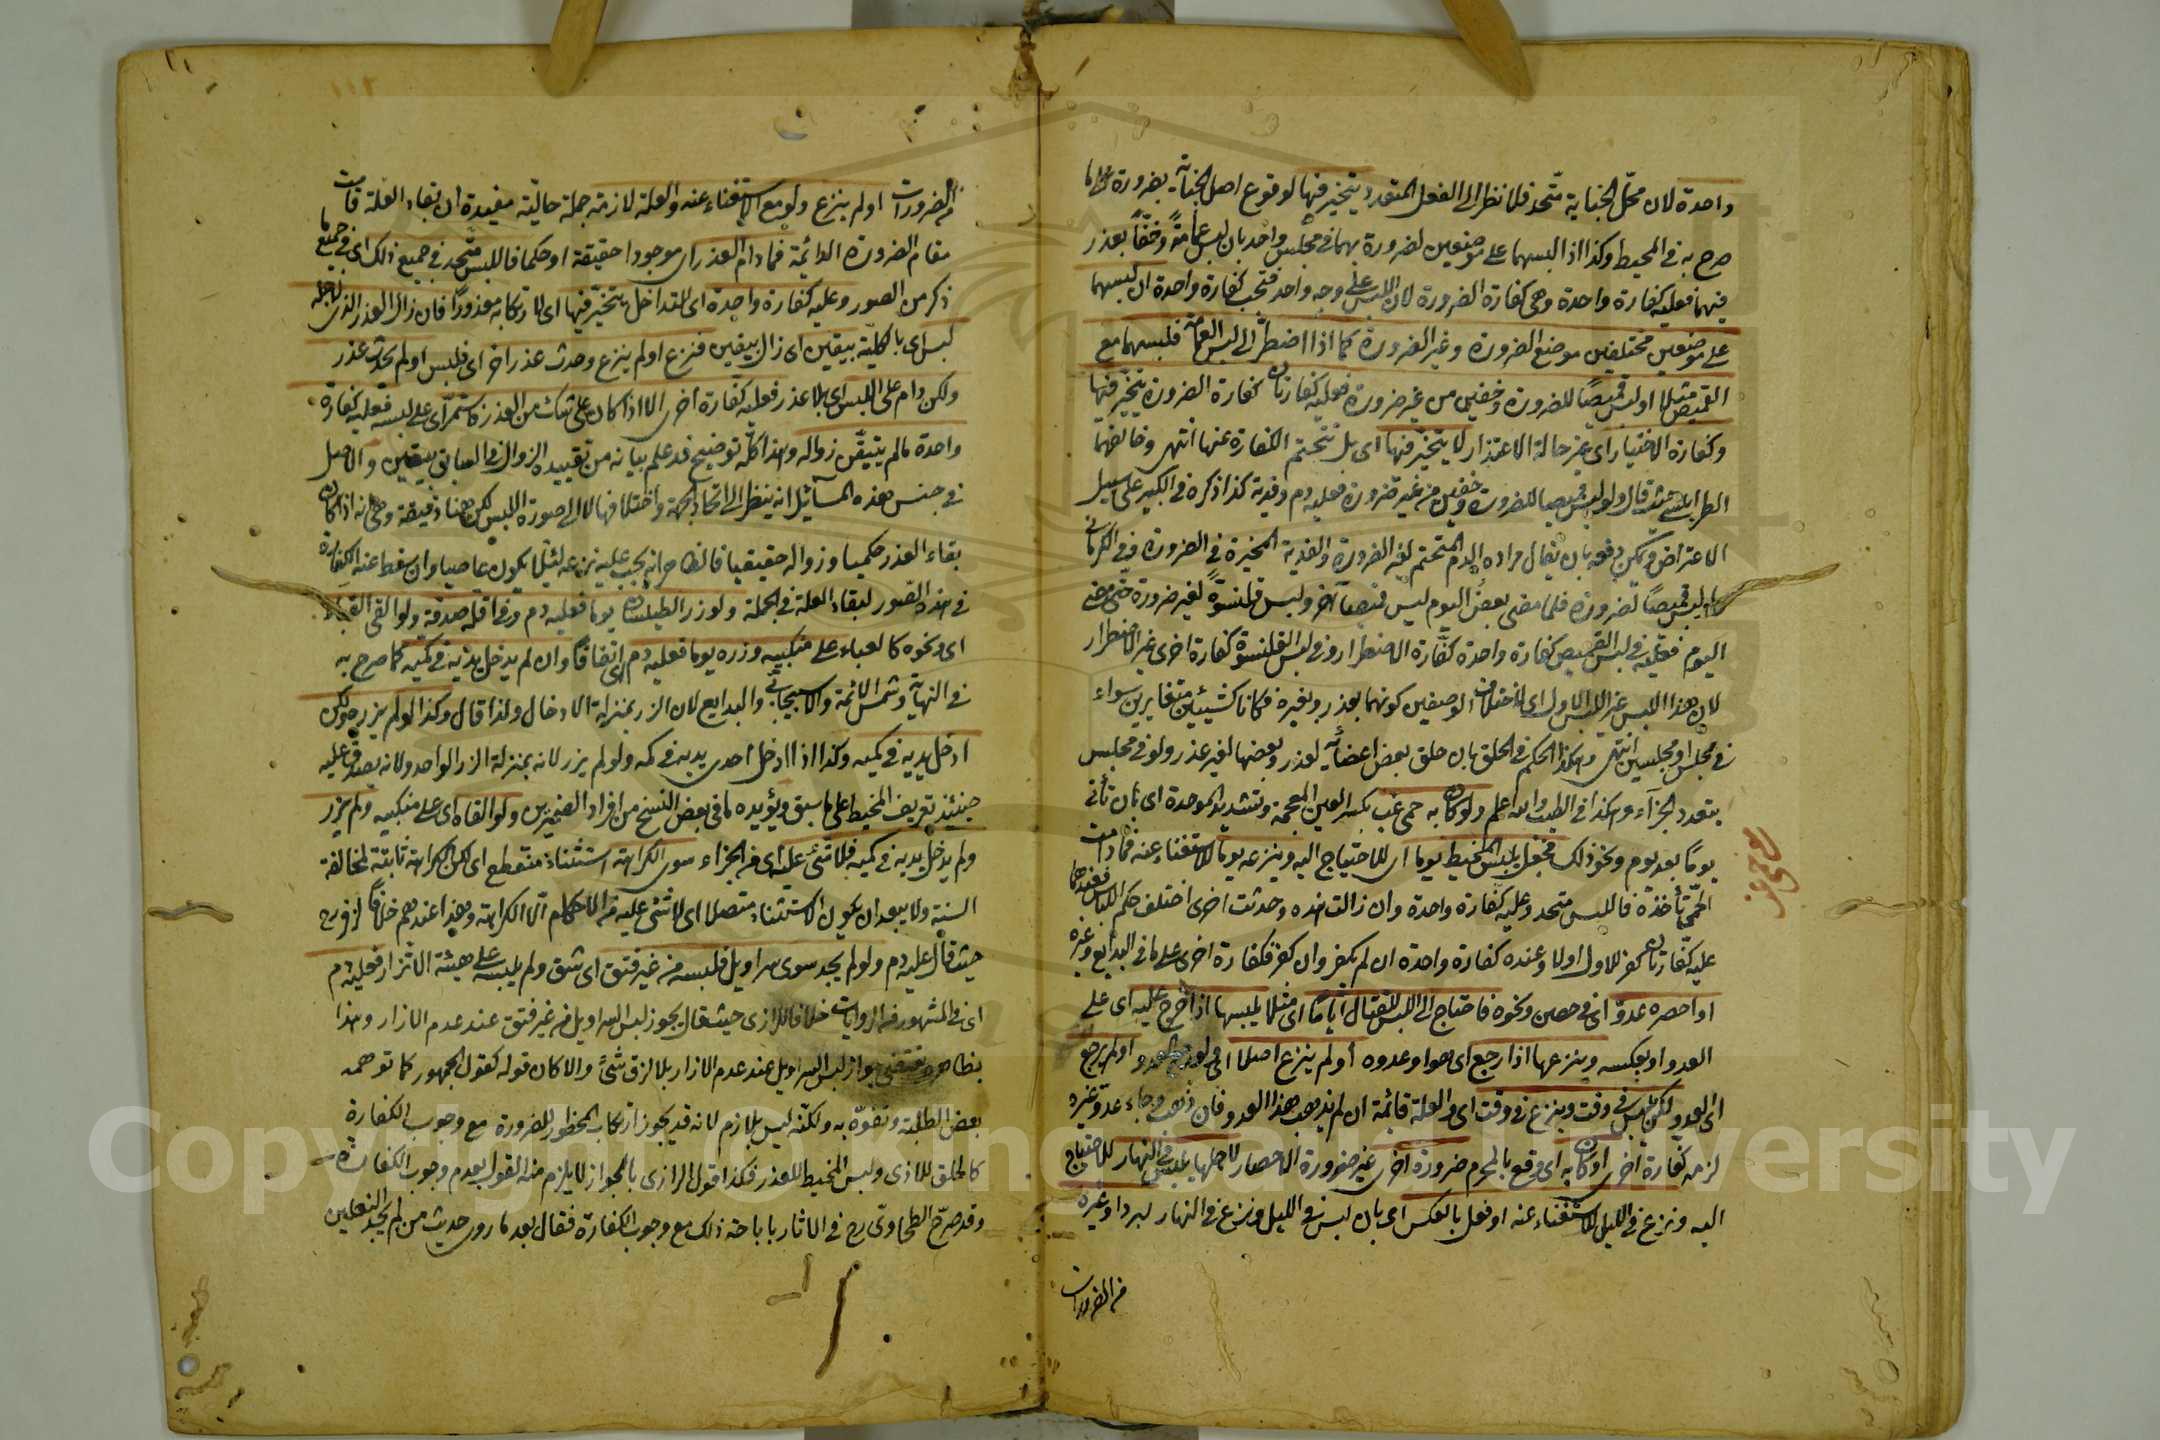 واحدة لان محل الجناية متحد فلا نظر الى الفعل المتعدد يتخير فيها لوقوع اصل الجناية بضرورة على ما
صرح به في المحيط وكذا اذا لبسهما على موضعين لضرورة بهما في مجلس واحد بان لبس عمامة وخفا بعذر
فيهما فعليه كفارة واحدة وهي كفارة الضرورة لان اللبس على وجه واحد فتجب كفارة واحدة ان لبسهما
على موضعين مختلفين موضع الضرورة وغير الضرورة كما اذا اضطر الى لبس العمامة فلبسهما مع
القميص مثلا او لبس قميصا للضرورة وخفين من غير ضرورة فعليه كفارتان كفارة الضرورة يتخير فيها
وكفارة الاختيار اى غير حالة الاعتذار لا يتخير فيها اى بل تتحتم الكفارة عنها انتهى وخالفهما
الطرابلسي حيث قال ولو لبس قميصا للضرورة وخفين من غير ضرورة فعليه دم وفدية كذا ذكره في الكبير على سبيل
الاعتراض ويمكن دفعه بان يقال مراده الدم المتحتم لغير الضرورة والفدية المخيرة في الضرورة ففي الكرماني
لو لبس قميصا لضرورة فلما مضى بعض اليوم لبس قميصا آخر ولبس قلنسوة لغير ضرورة حتى مضى
اليوم فعليه في لبس القميص كفارة واحدة كفارة الاضطرار وفي لبس القلنسوة كفارة اخرى غير الاضطرار
لان هذا اللبس غير اللبس الاول اى لاختلاف الوصفين كونهما بعذر وبغيره فكانا كشيئين متغايرين سواء
في مجلس او مجلسين انتهى وهكذا الحكم في الحلق بان حلق بعض اعضائه لعذر وبعضها لغير عذر ولو في مجلس
يتعدد الجزآء وهكذا في الطيب والله اعلم ولو كان به حمى غب بكسر الغين المعجمة وتشديد الموحدة اى بان تأتي
يوما بعد يوم ونحو ذلك فجعل يلبس المخيط يوما اى للاحتياج اليه وينزعه يوما للاستغناء عنه فما دامت
الحمى تأخذه فاللبس متحد وعليه كفارة واحدة وان زالت هذه وحدثت اخرى اختلف حكم اللباس فعندهما
عليه كفارتان كفر للاول اولا وعنده كفارة واحدة ان لم يكفر وان كفر فكفارة اخرى على ما في البدايع وغيره
او احصره عدو اى في حصن ونحوه فاحتاج الى اللبس للقتال اياما اى مثلا يلبسها اذا خرج عليه اى على
العدو او بعكسه وينزعها اذا رجع اى هو او عدوه أو لم ينزع اصلا اى ولو رجع العدو او لم يرجع
اى العدو ولكن يلبس في وقت وينزع في وقت اى والعلة قائمة ان لم يذهب هذا العدو فان ذهب وجاء عدو غيره
لزمه كفارة اخرى او كان به اى وقع بالمحرم ضرورة اخرى غير ضرورة الاحصار لاجلها يلبس في النهار للاحتياج
اليه ونزع في الليل للاستغناء عنه او فعل بالعكس اى بان لبس في الليل ونزع في النهار لبرد او غيره
من الضرورات
حمى غب
من الضرورات او لم ينزع ولو مع الاستغناء عنه والعلة لازمة جملة حالية مفيدة ان بقاء العلة قامت
مقام الضرورة الدائمة فما دام العذر اى موجودا حقيقة او حكما فاللبس متحد في جميع ذلك اى في جميع ما
ذكر من الصور وعليه كفارة واحدة اى للتداخل يتخير فيها اى لارتكابه معذورا فان زال العذر الذى لاجله
لبس اى بالكلية بيقين اى زال بيقين فنزع او لم ينزع وحدث عذر اخر اى فلبس او لم يحدث عذر
ولكن دام على اللبس اى بلا عذر فعليه كفارة اخرى الا اذا كان على شك من العذر فاستمر اى على لبسه فعليه كفارة
واحدة ما لم يتيقن زواله وهذا كله توضيح قد علم بيانه من تقييده الزوال في السابق بيقين والاصل
في جنس هذه المسآئل انه ينظر الى اتحاد الجهة واختلافها لا الى صورة اللبس لكن هنا دقيقة وهي انه اذا كان
بقاء العذر حكميا وزواله حقيقيا فالظاهر انه يجب عليه نزعه لئلا يكون عاصيا وان سقط عنه الكفارة
في هذه الصور لبقاء العلة في الجملة ولو زر الطيلسان يوما فعليه دم وفي اقله صدقة ولو القى القباء
اى ونحوه كالعباء على منكبيه وزره يوما فعليه دم اى اتفاقا وان لم يدخل يديه في كميه كما صرح به
في النهاية وشمس الائمة والاسبيجابي والبدايع لان الزر بمنزلة الادخال ولذا قال وكذا لو لم يزره ولكن
ادخل يديه في كميه وكذا اذا ادخل احدى يديه في كمه ولو لم يزر لانه بمنزلة الزر الواحد ولانه يصدق عليه
حينئذ تعريف المخيط على ما سبق ويؤيده ما في بعض النسخ من افراد الضميرين ولو القاه اى على منكبيه ولم يزر
ولم يدخل يديه في كميه فلا شئ عليه اى من الجزاء سوى الكراهة استثناء منقطع اى لكن الكراهة ثابتة لمخالفة
السنة ولا يبعد ان يكون الاستثناء متصلا اى لا شئ عليه من الاحكام الا الكراهة وهذا عندهم خلافا لزفر رح
حيث قال عليه دم ولو لم يجد سوى سراويل فلبسه من غير فتق اى شق ولم يلبسه على هيئة الاتزار فعليه دم
اى في المشهور من الروايات خلافا للرازى حيث قال يجوز لبس السراويل من غير فتق عند عدم الازار وهذا
بظاهره يقتضي جواز لبس السراويل عند عدم الازار بلا لزوم شئ والا كان قوله كقول الجمهور كما توهمه
بعض الطلبة وتفوه به ولكنه ليس بلازم لانه قد يجوز ارتكاب المحظور للضرورة مع وجوب الكفارة
كالحلق للاذى ولبس المخيط للعذر فكذا قول الرازى بالجواز لا يلزم منه القول بعدم وجوب الكفارة
وقد صرح الطحاوى رح في الاثار باباحة ذلك مع وجوب الكفارة فقال بعد ما روى حديث من لم يجد النعلين
Copyright © King Saud University